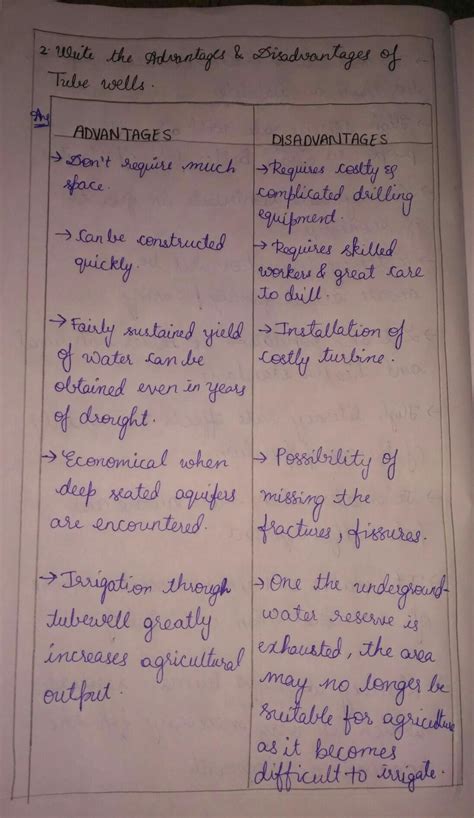 2. Write the Advantages & Disadvantages of
Tube wells.
Ans
ADVANTAGES
→ Don't require much
space.
→ Can be constructed
quickly.
→ Fairly sustained yield
of water can be
obtained even in years
of drought.
→ Economical when
deep seated aquifers
are encountered.
→ Irrigation through
tubewell greatly
increases agricultural
output.
DISADVANTAGES
→ Requires costly &
complicated drilling
equipment.
→ Requires skilled
workers & great care
to drill.
→ Installation of
costly turbine.
→ Possibility of
missing the
fractures, fissures.
→ One the underground-
water reserve is
exhausted, the area
may no longer be
suitable for agriculture
as it becomes
difficult to irrigate.